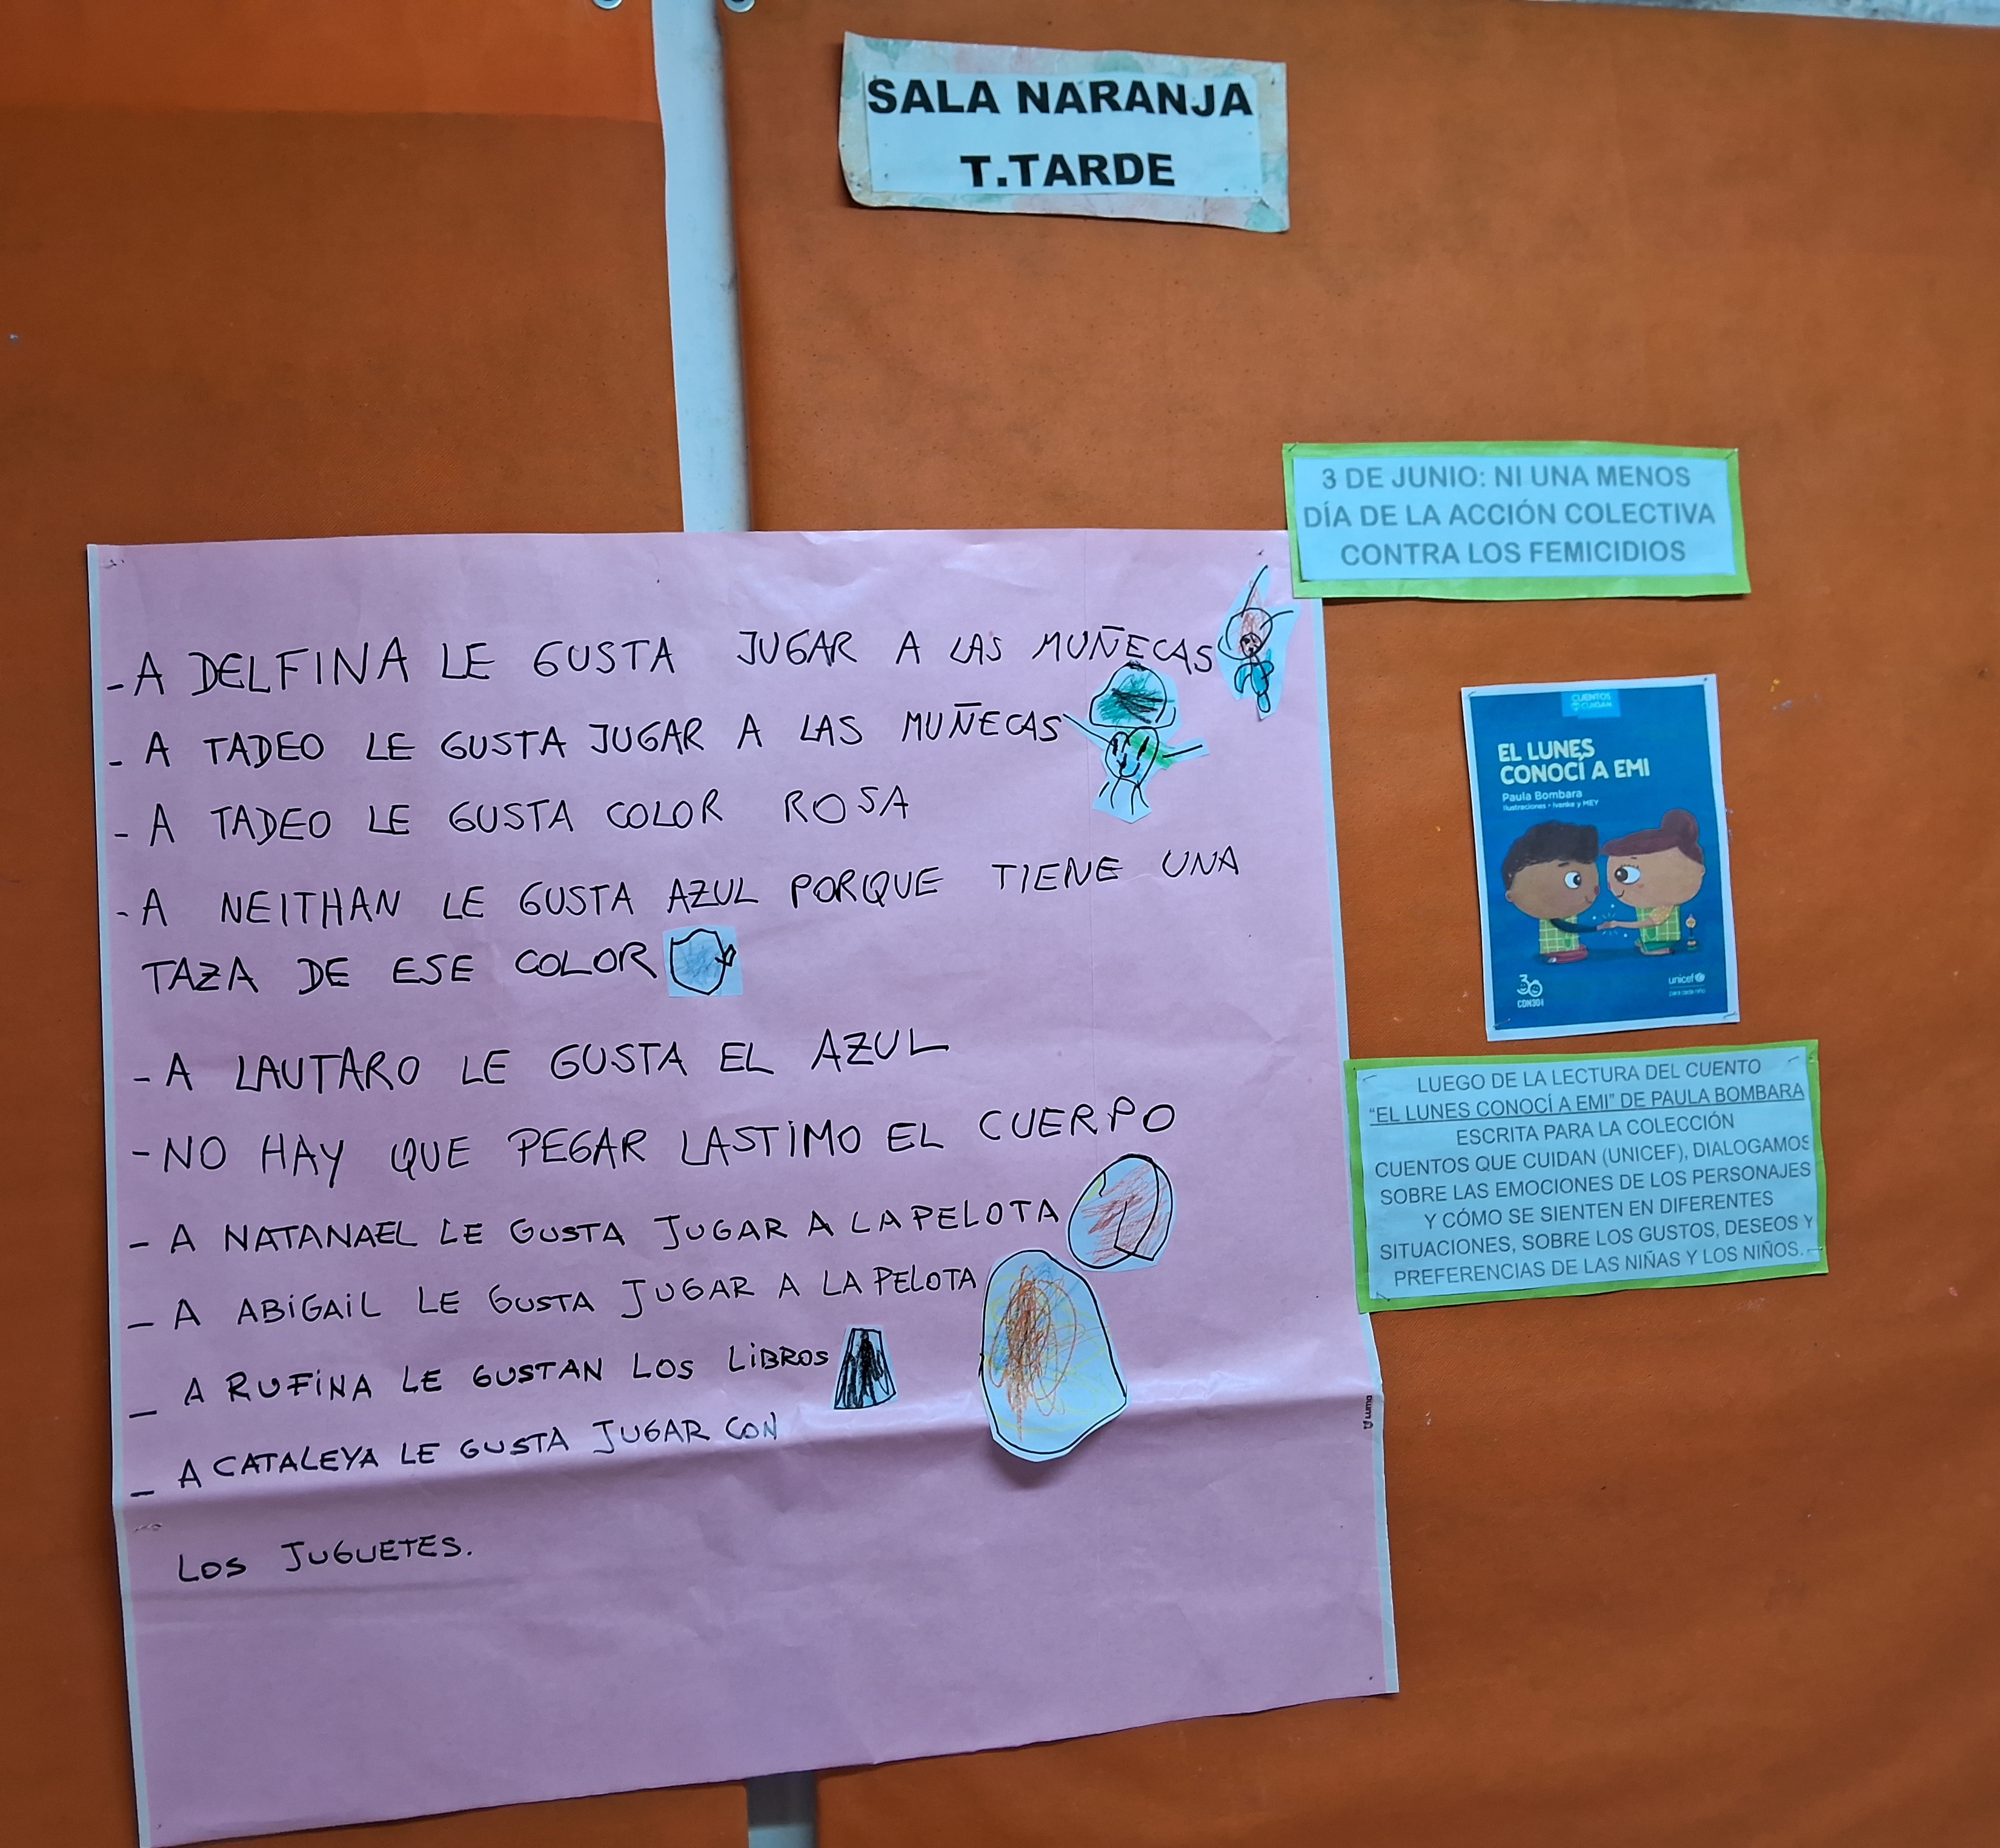 SALA NARANJA
T.TARDE
3 DE JUNIO: NI UNA MENOS
DÍA DE LA ACCIÓN COLECTIVA
CONTRA LOS FEMICIDIOS
- A DELFINA LE GUSTA JUGAR A LAS MUÑECAS
- A TADEO LE GUSTA JUGAR A LAS MUÑECAS
- A TADEO LE GUSTA COLOR ROSA
- A NEITHAN LE GUSTA AZUL PORQUE TIENE UNA
TAZA DE ESE COLOR
- A LAUTARO LE GUSTA EL AZUL
- NO HAY QUE PEGAR LASTIMO EL CUERPO
- A NATANAEL LE GUSTA JUGAR A LA PELOTA
- A ABIGAIL LE GUSTA JUGAR A LA PELOTA
- A RUFINA LE GUSTAN LOS LIBROS
- A CATALEYA LE GUSTA JUGAR CON
LOS JUGUETES.
luma
CUENTOS
QUE CUIDAN
EL LUNES
CONOCÍ A EMI
Paula Bombara
Ilustraciones • Ivanke y MEY
CDN30
unicef
para cada niño
LUEGO DE LA LECTURA DEL CUENTO
"EL LUNES CONOCÍ A EMI" DE PAULA BOMBARA
ESCRITA PARA LA COLECCIÓN
CUENTOS QUE CUIDAN (UNICEF), DIALOGAMOS
SOBRE LAS EMOCIONES DE LOS PERSONAJES
Y CÓMO SE SIENTEN EN DIFERENTES
SITUACIONES, SOBRE LOS GUSTOS, DESEOS Y
PREFERENCIAS DE LAS NIÑAS Y LOS NIÑOS.